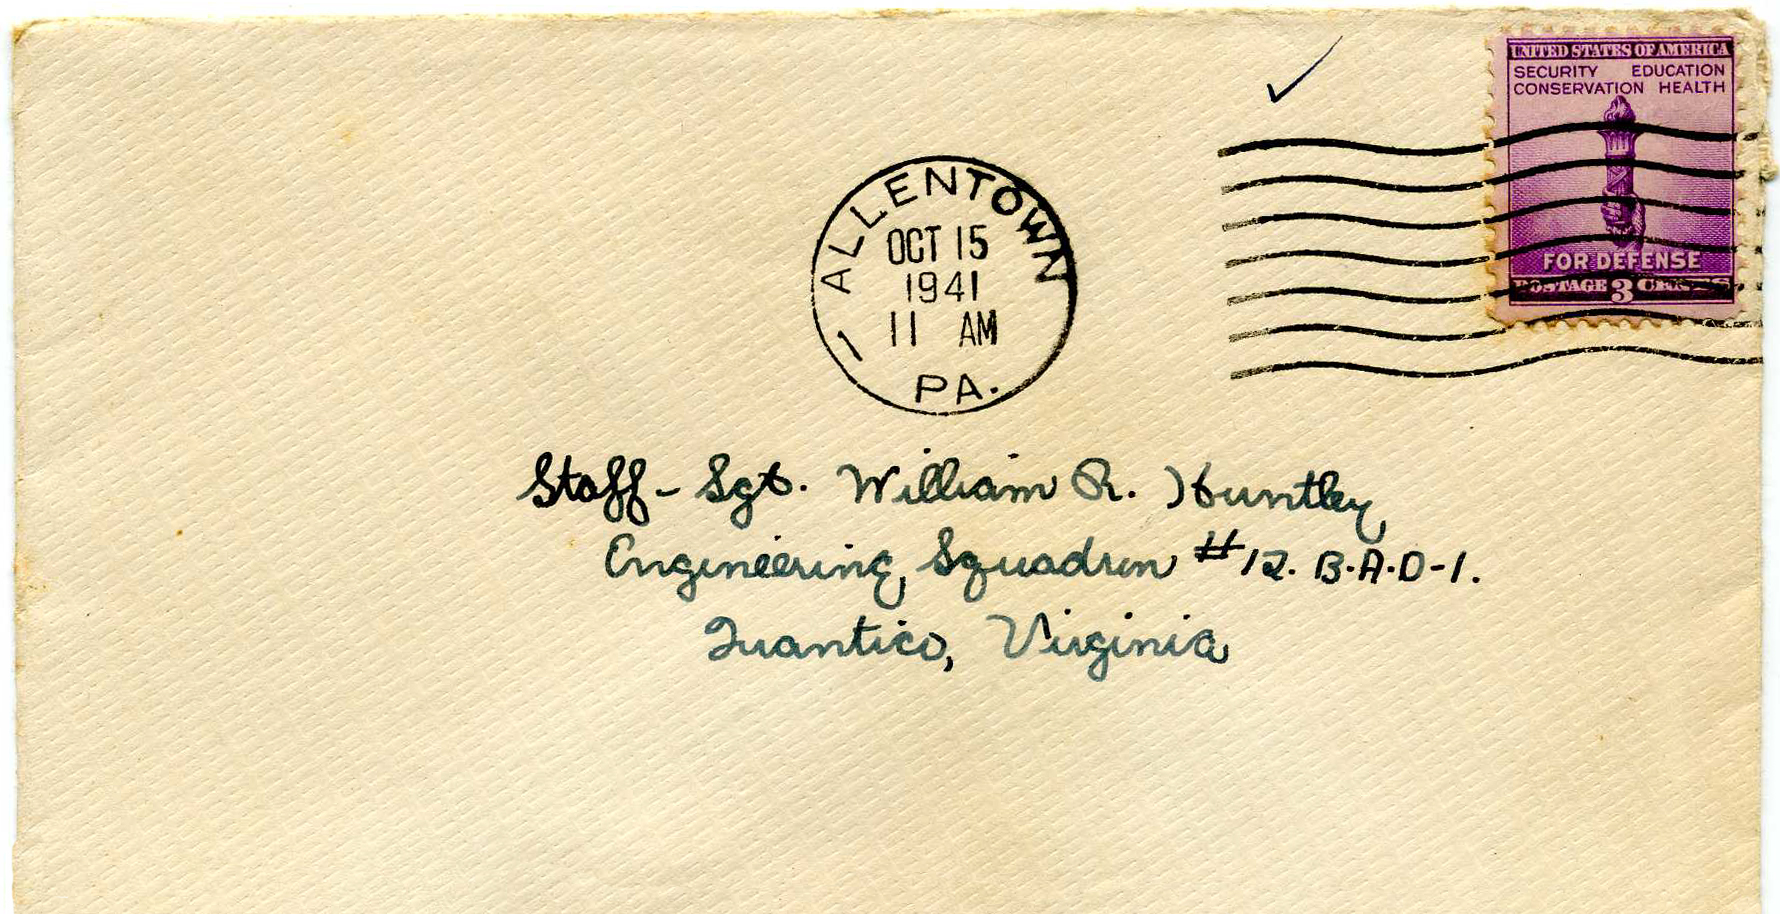 UNITED STATES OF AMERICA
SECURITY EDUCATION
CONSERVATION HEALTH
FOR DEFENSE
POSTAGE 3 CENTS
ALLENTOWN
OCT 15
1941
11 AM
1
PA.
Staff-Sgt. William R. Huntley
Engineering Squadron #12. B.A.D-1.
Quantico, Virginia